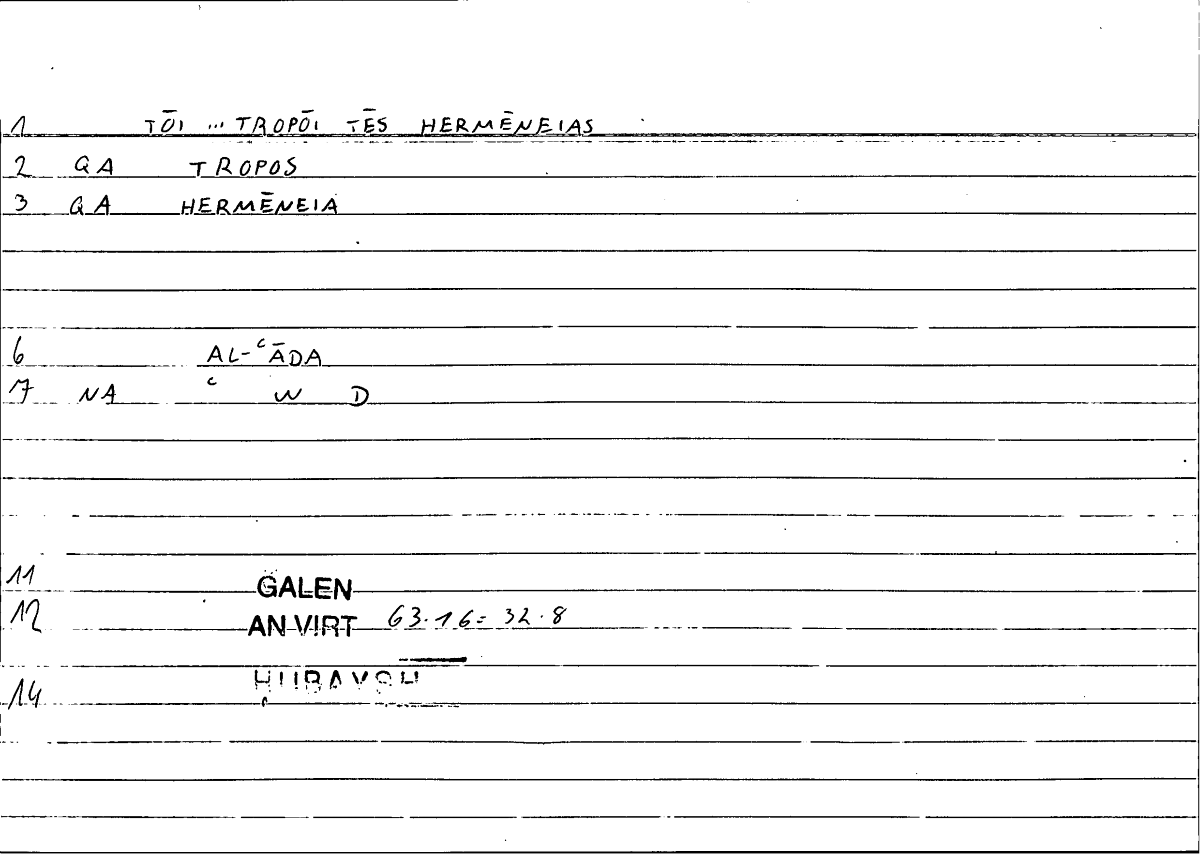 1 TŌI ... TROPŌI TĒS HERMĒNEIAS
2 QA TROPOS
3 QA HERMĒNEIA
6 AL-ʿĀDA
7 NA ʿ W D
11 GALEN
12 AN VIRT 63.16 = 32.8
14 ḤUBAYSH